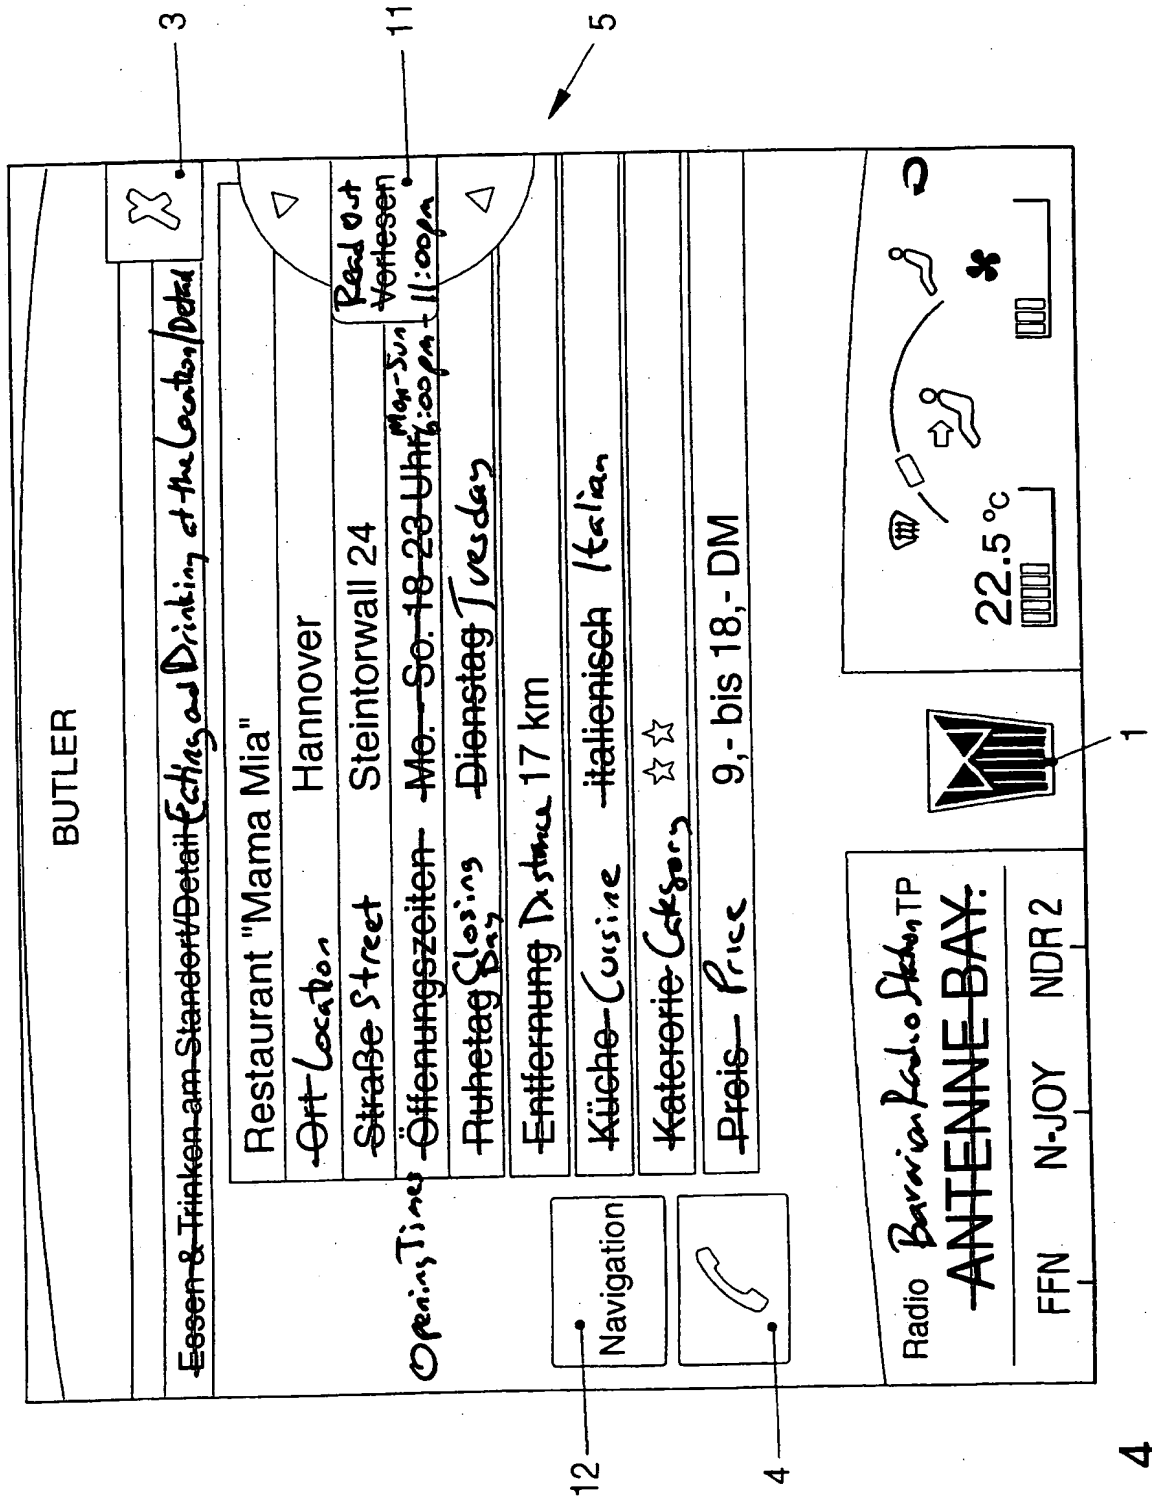 BUTLER
3
Essen & Trinken am Standort/Detail Eating and Drinking at the Location/Detail
Restaurant "Mama Mia"
Ort Location Hannover
Read Out
Straße Street Steintorwall 24 Vorlesen
11
Mon-Sun
Opening Times Öffenungszeiten Mo. - So. 18-23 Uhr 6:00pm - 11:00pm
Ruhetag Closing Day Dienstag Tuesday
Entfernung Distance 17 km
5
Küche Cuisine italienisch Italian
Katerorie Category ☆☆
Preis Price 9,- bis 18,- DM
12
Navigation
4
Radio Bavarian Radio Station TP
ANTENNE BAY.
FFN N-JOY NDR 2
1
22.5 °C
4